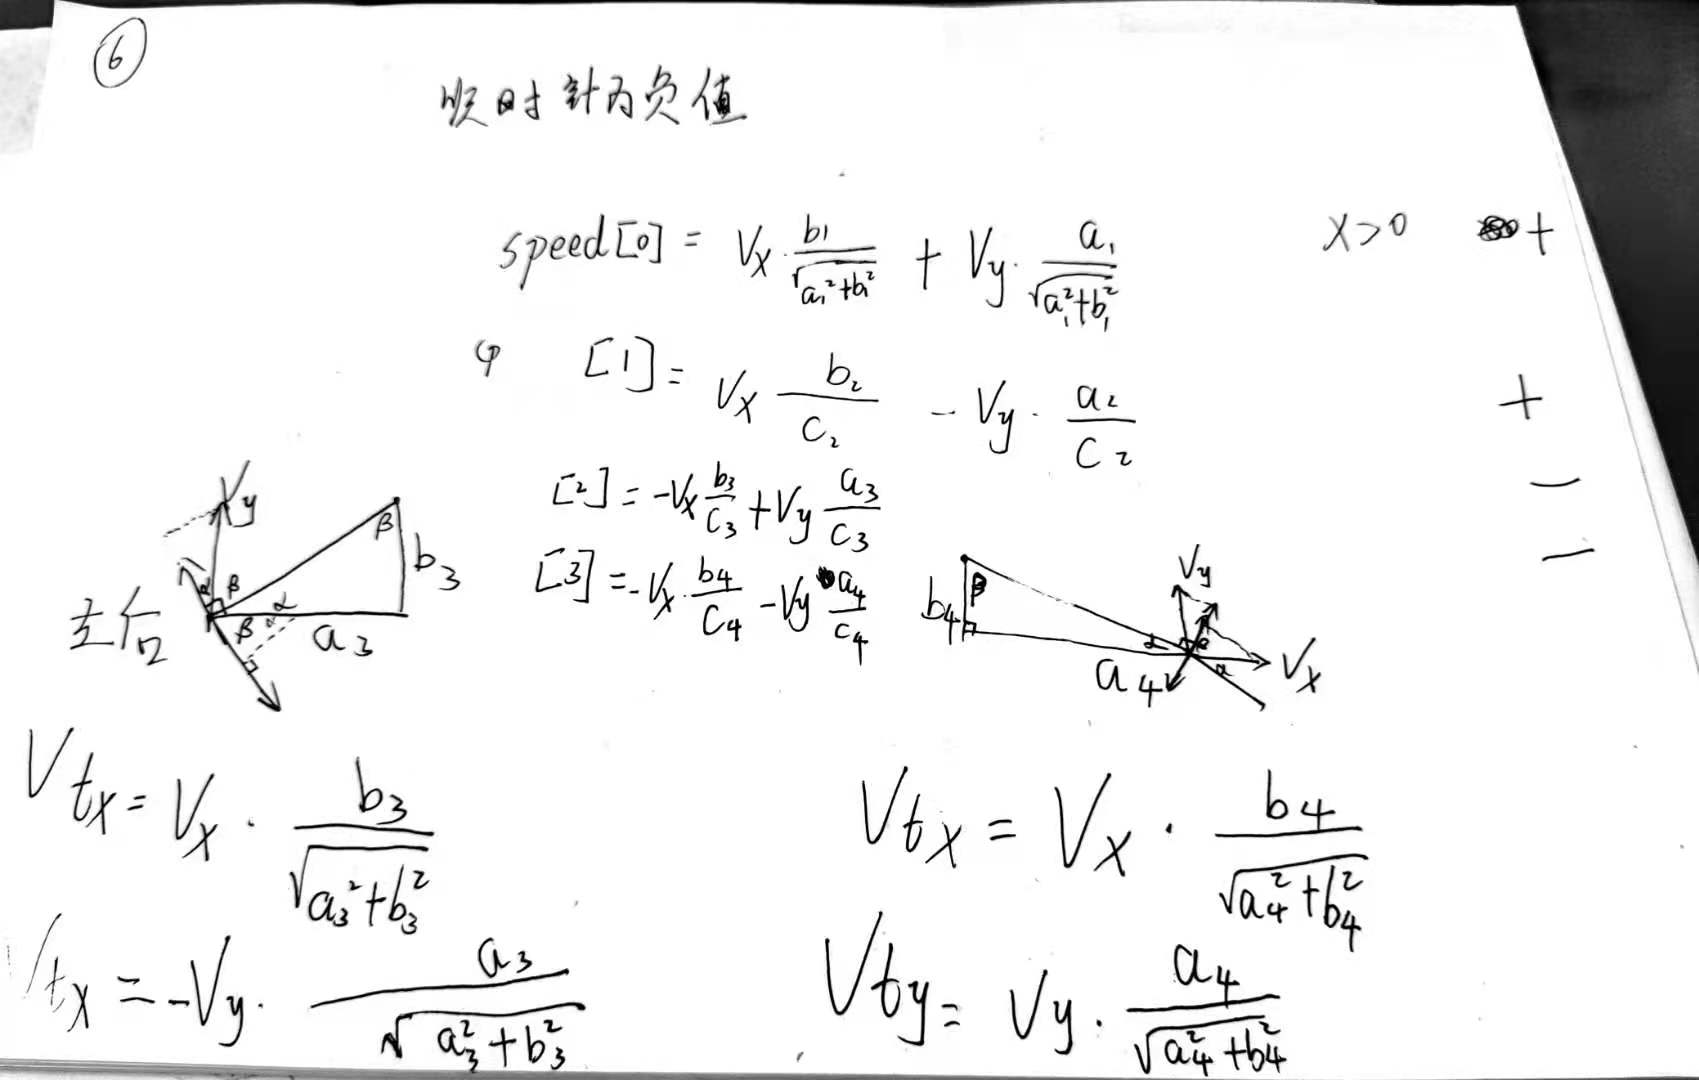 ⑥
顺时针为负值
speed[0] = Vx · b₁/√(a₁²+b₁²) + Vy · a₁/√(a₁²+b₁²) x>0 +
φ [1] = Vx b₂/C₂ - Vy · a₂/C₂ +
[2] = -Vx b₃/C₃ + Vy a₃/C₃ -
[3] = -Vx · b₄/C₄ - Vy a₄/C₄ -
Vy β b₃
α β α α
β a₃
Vy
b₄ β α α
a₄ Vx
Vtx = Vx · b₃/√(a₃²+b₃²)
Vtx = Vx · b₄/√(a₄²+b₄²)
Vtx = -Vy · a₃/√(a₃²+b₃²)
Vty = Vy · a₄/√(a₄²+b₄²)